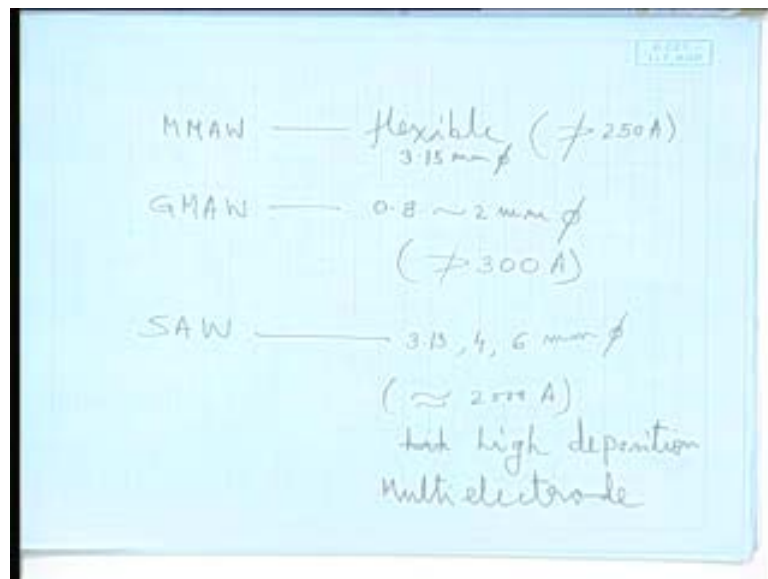 MMAW —— flexible (≯ 250A)
3.15 mm ϕ
GMAW —— 0.8 ~ 2 mm ϕ
(≯ 300 A)
SAW —— 3.15, 4, 6 mm ϕ
(≈ 2000 A)
high deposition
Multi electrode